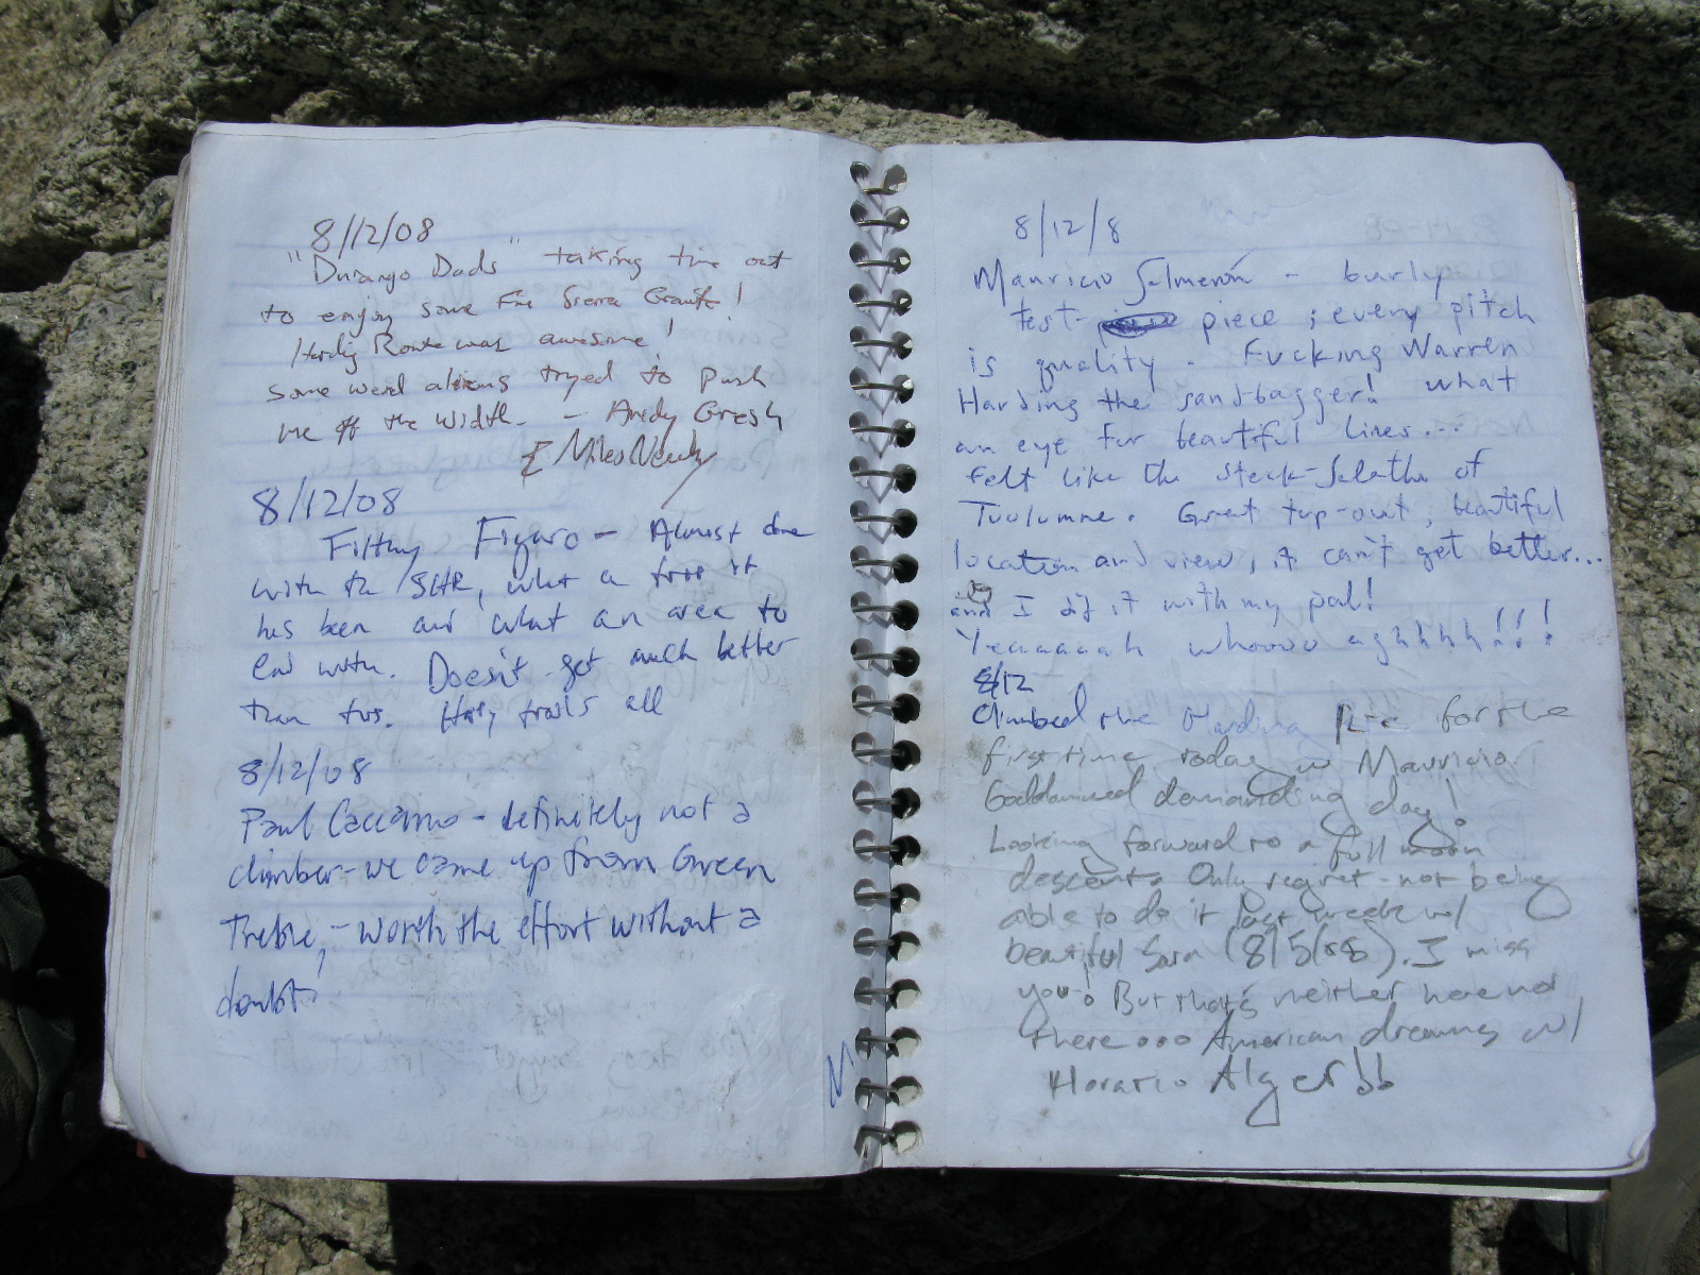 8/12/08
"Durango Dads" taking time out
to enjoy some Fine Sierra Granite!
Harding Route was awesome!
some weird aliens tryed to push
me off the width. - Andy Gresh
& Miles
8/12/08
Filthy Figaro - Almost done
with the SHR, what a trip it
has been and what an area to
end with. Doesn't get much better
than this. Happy trails all
8/12/08
Paul Caccamo - definitely not a
climber - we came up from Green
Treble, - worth the effort without a
doubt!
8/12/8
Mauricio Salmerón - burly
test- piece ; every pitch
is quality. Fucking Warren
Harding the sandbagger! what
an eye for beautiful lines...
felt like the Steck-Salathe of
Tuolumne. Great top-out, beautiful
location and view, it can't get better...
and I did it with my pal!
Yeaaaaah whoooo aghhhh!!!
8/12
Climbed the Harding Rte for the
first time today w Mauricio.
Goddamned demanding day!
Looking forward to a full moon
descent. Only regret - not being
able to do it last week w/
beautiful Sara (8/5/08). I miss
you! But that's neither here nor
there ooo American dreams w/
Horatio Alger!!